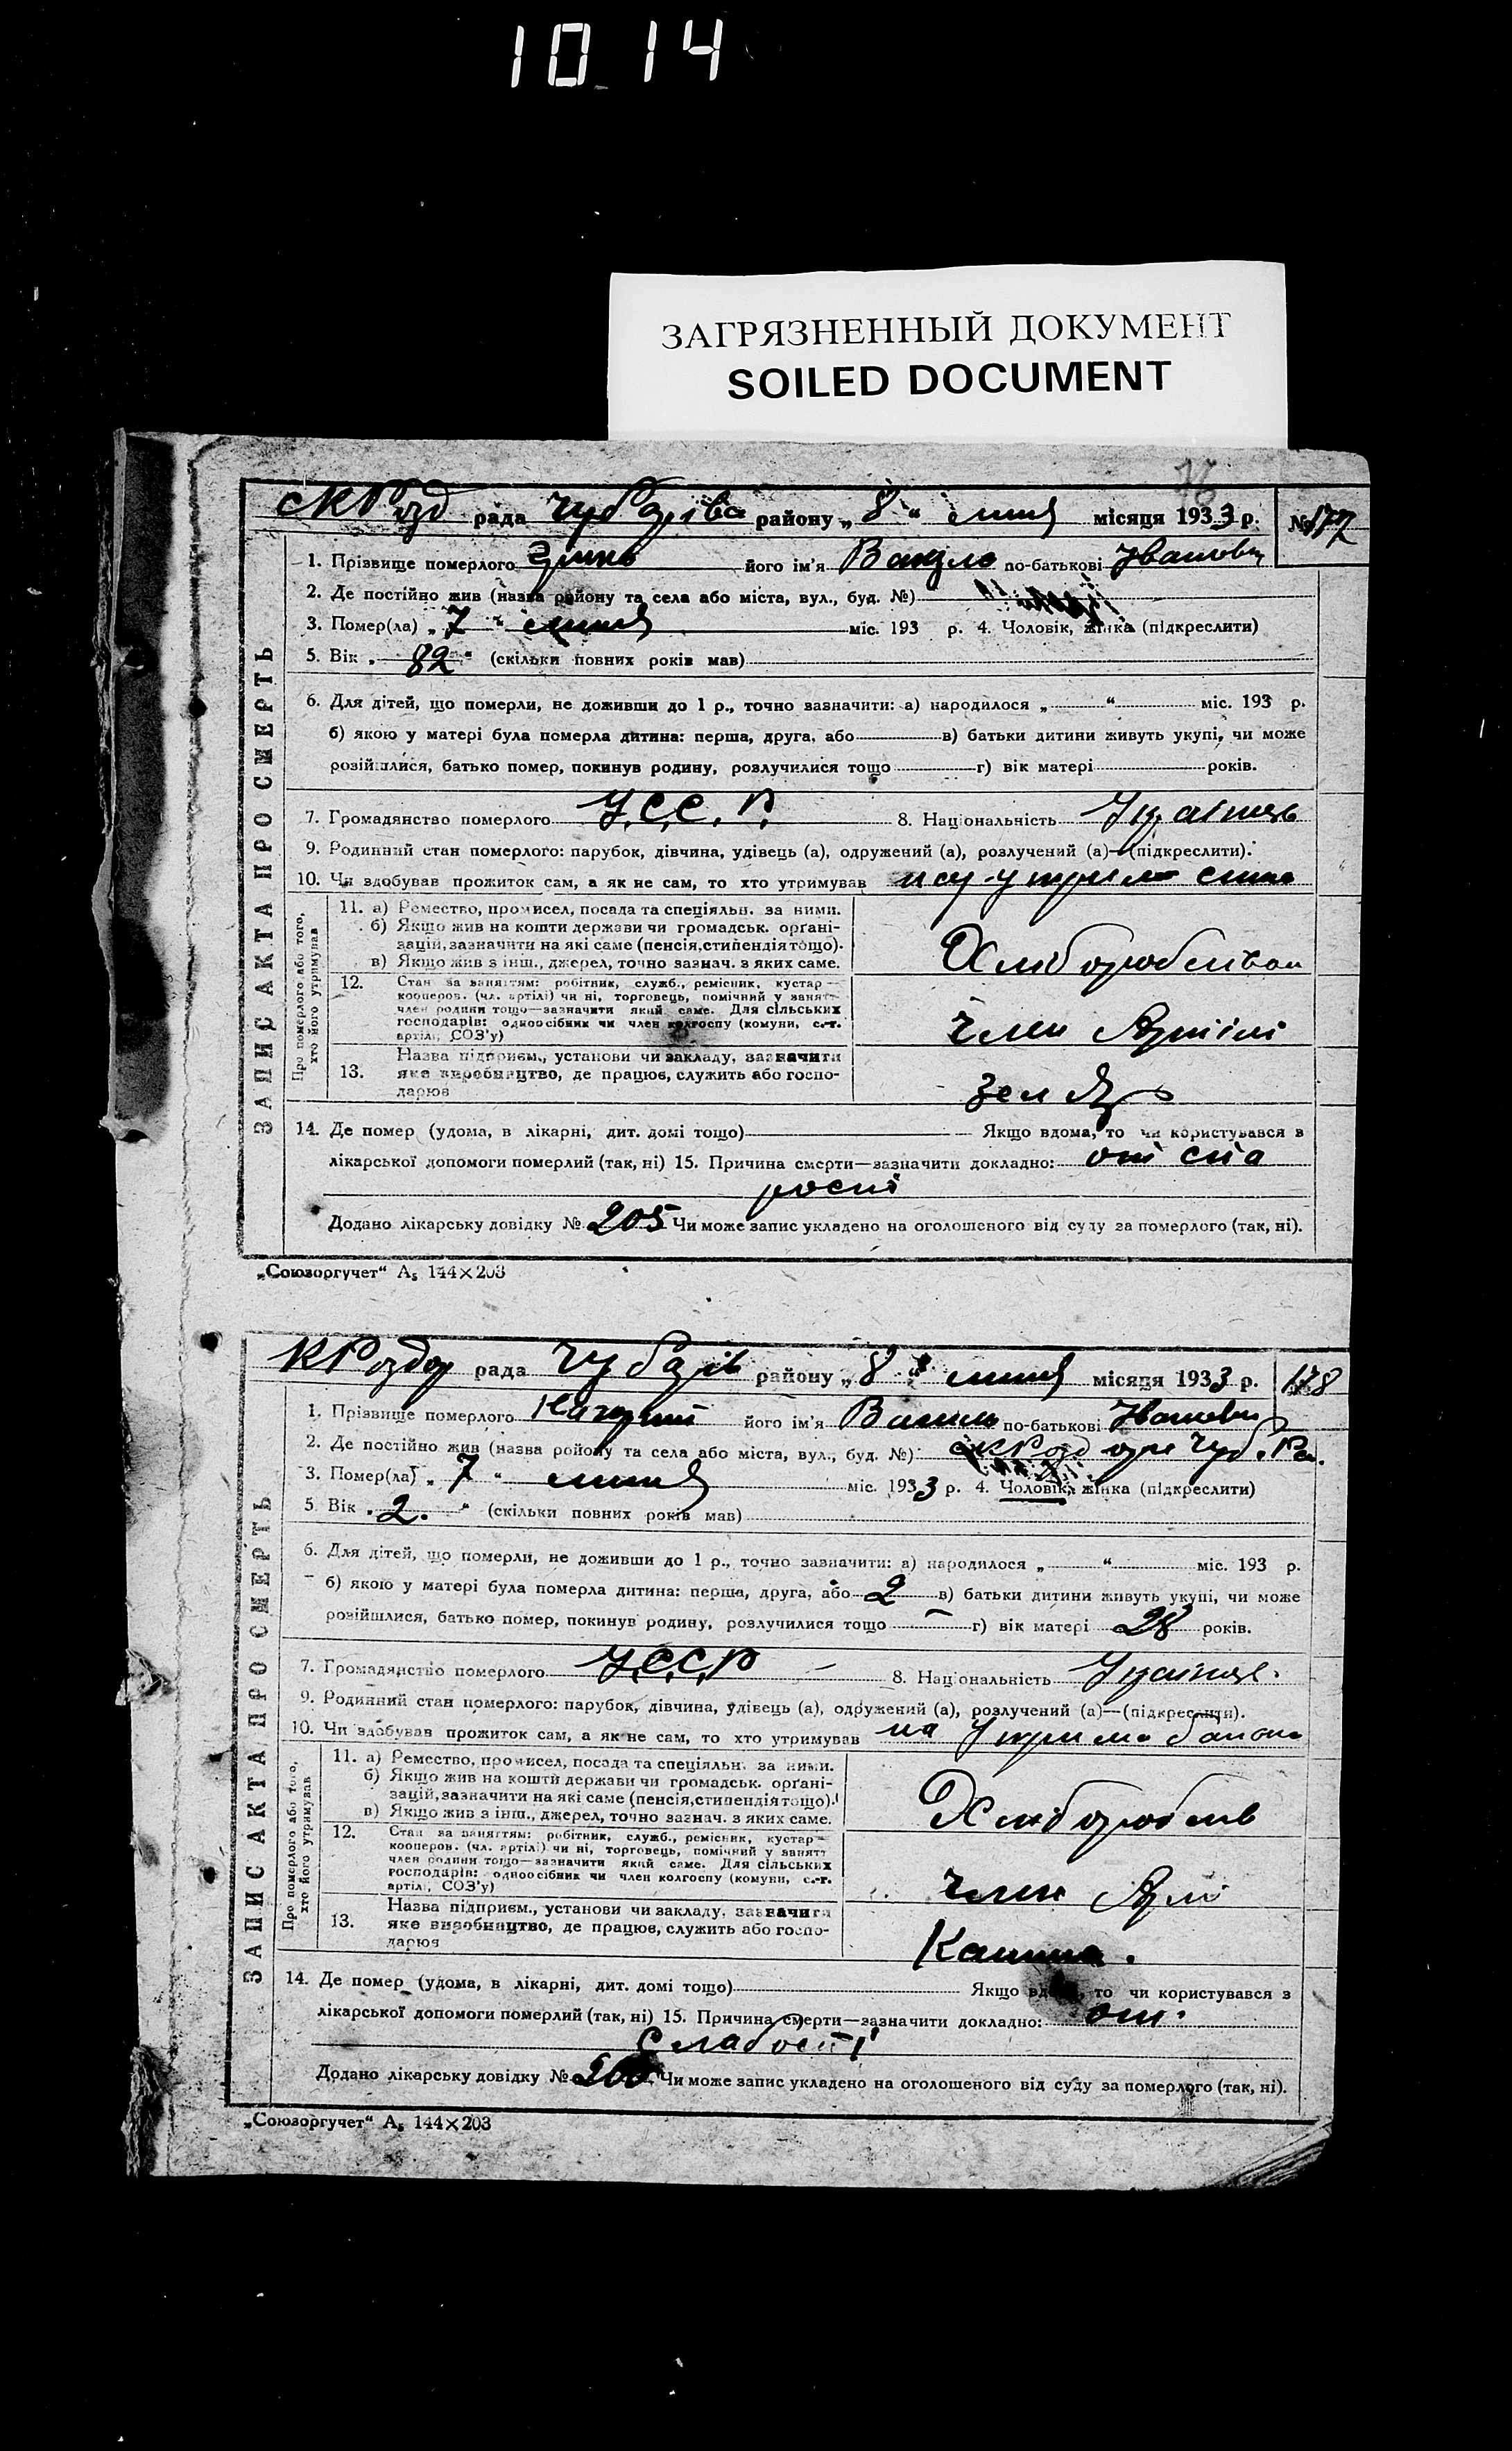 10 14
ЗАГРЯЗНЕННЫЙ ДОКУМЕНТ
SOILED DOCUMENT
76
рада району „ 8 “ липня місяця 1933 р. № 177
ЗАПИС АКТА ПРО СМЕРТЬ
1. Прізвище померлого його ім'я по-батькові Іванович
2. Де постійно жив (назва району та села або міста, вул., буд. №)
3. Помер(ла) „ 7 “ липня міс. 193 р. 4. Чоловік, жінка (підкреслити)
5. Вік „ 82 “ (скільки повних років мав)
6. Для дітей, що померли, не доживши до 1 р., точно зазначити: а) народилося „ “ міс. 193 р.
б) якою у матері була померла дитина: перша, друга, або в) батьки дитини живуть укупі, чи може
розійшлися, батько помер, покинув родину, розлучилися тощо г) вік матері років.
7. Громадянство померлого У.С.С.Р. 8. Національність
9. Родинний стан померлого: парубок, дівчина, удівець (а), одружений (а), розлучений (а)—(підкреслити).
10. Чи здобував прожиток сам, а як не сам, то хто утримував сина
Про померлого або того, хто його утримував
11. а) Ремество, промисел, посада та спеціяльн. за ними.
б) Якщо жив на кошти держави чи громадськ. органі-
зацій, зазначити на які саме (пенсія, стипендія тощо).
в) Якщо жив з інш., джерел, точно зазнач. з яких саме.
12. Стан за заняттям: робітник, служб., ремісник, кустар—
кооперов. (чл. артілі) чи ні, торговець, помічний у занятт
член родини тощо—зазначити який саме. Для сільських
господарів: одноосібник чи член колгоспу (комуни, с.-г.
артілі, СОЗ'у)
член Артілі
13. Назва підприєм., установи чи закладу, зазначити
яке виробництво, де працює, служить або госпо-
дарює
14. Де помер (удома, в лікарні, дит. домі тощо) Якщо вдома, то чи користувався з
лікарської допомоги померлий (так, ні) 15. Причина смерти—зазначити докладно: от ста
рости
Додано лікарську довідку № 205 Чи може запис укладено на оголошеного від суду за померлого (так, ні).
„Союзоргучет“ А5 144×203
рада району „ 8 “ липня місяця 1933 р. 178
ЗАПИС АКТА ПРО СМЕРТЬ
1. Прізвище померлого його ім'я Василь по-батькові Іванович
2. Де постійно жив (назва району та села або міста, вул., буд. №)
3. Помер(ла) „ 7 “ липня міс. 1933 р. 4. Чоловік, жінка (підкреслити)
5. Вік „ 2. “ (скільки повних років мав)
6. Для дітей, що померли, не доживши до 1 р., точно зазначити: а) народилося „ “ міс. 193 р.
б) якою у матері була померла дитина: перша, друга, або 2 в) батьки дитини живуть укупі, чи може
розійшлися, батько помер, покинув родину, розлучилися тощо — г) вік матері 28 років.
7. Громадянство померлого У.С.С.Р 8. Національність
9. Родинний стан померлого: парубок, дівчина, удівець (а), одружений (а), розлучений (а)—(підкреслити).
10. Чи здобував прожиток сам, а як не сам, то хто утримував на
Про померлого або того, хто його утримував
11. а) Ремество, промисел, посада та спеціяльн. за ними.
б) Якщо жив на кошти держави чи громадськ. органі-
зацій, зазначити на які саме (пенсія, стипендія тощо).
в) Якщо жив з інш., джерел, точно зазнач. з яких саме.
12. Стан за заняттям: робітник, служб., ремісник, кустар—
кооперов. (чл. артілі) чи ні, торговець, помічний у занятт
член родини тощо—зазначити який саме. Для сільських
господарів: одноосібник чи член колгоспу (комуни, с.-г.
артілі, СОЗ'у)
член
13. Назва підприєм., установи чи закладу, зазначити
яке виробництво, де працює, служить або госпо-
дарює
14. Де помер (удома, в лікарні, дит. домі тощо) Якщо вдома, то чи користувався з
лікарської допомоги померлий (так, ні) 15. Причина смерти—зазначити докладно: от
слабості
Додано лікарську довідку № Чи може запис укладено на оголошеного від суду за померлого (так, ні).
„Союзоргучет“ А5 144×203